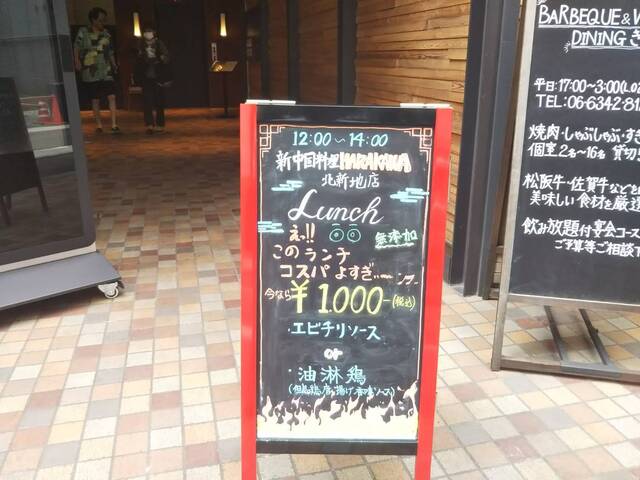 12:00〜14:00
新中国料理HARAKAWA
北新地店
Lunch
えっ!!
無添加
このランチ
コスパよすぎ
今なら¥1.000-(税込)
エビチリソース
or
油淋鶏
BARBEQUE&
DINING
平日:17:00〜3:00(L.O
TEL:06-6342-81
焼肉・しゃぶしゃぶ・すき
個室2名〜16名 貸切
松阪牛・佐賀牛など
美味しい食材を厳選
飲み放題付宴会コース
ご予算等ご相談下